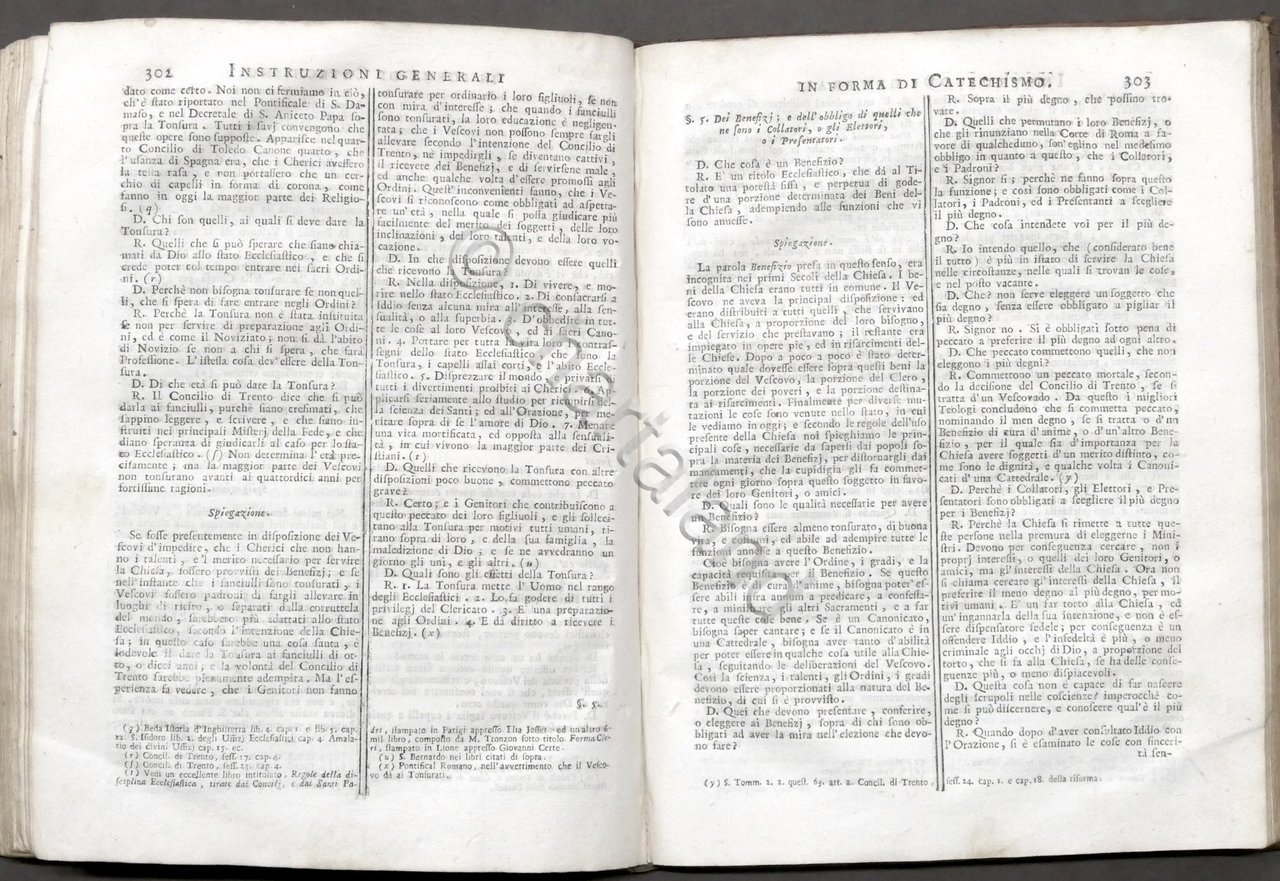 302 INSTRUZIONI GENERALI
dato come certo. Noi non ci fermiamo in ciò,
ch'è stato riportato nel Pontificale di S. Da-
maso, e nel Decretale di S. Aniceto Papa so-
pra la Tonsura. Tutti i savj convengono che
queste opere sono supposte. Apparisce nel quar-
to Concilio di Toledo Canone quarto, che
l'usanza di Spagna era, che i Cherici avessero
la testa rasa, e non portassero che un cer-
chio di capelli in forma di corona, come
fanno in oggi la maggior parte dei Religio-
si. (q)
D. Chi son quelli, ai quali si deve dare la
Tonsura?
R. Quelli che si può sperare che siano chia-
mati da Dio allo stato Ecclesiastico, e che si
crede poter col tempo entrare nei sacri Ordi-
ni. (r)
D. Perchè non bisogna tonsurare se non quel-
li, che si spera di fare entrare negli Ordini?
R. Perchè la Tonsura non è stata instituita
se non per servire di preparazione agli Ordi-
ni, ed è come il Noviziato; non si dà l'abito
di Novizio se non a chi si spera, che farà
Professione. L'istessa cosa dev'essere della Ton-
sura.
D. Di che età si può dare la Tonsura?
R. Il Concilio di Trento dice che si può
darla ai fanciulli, purchè siano cresimati, che
sappino leggere, e scrivere, e che siano in-
struiti nei principali Misterj della Fede, e che
diano speranza di giudicarli al caso per lo sta-
to Ecclesiastico. (s) Non determina l'età pre-
cisamente; ma la maggior parte dei Vescovi
non tonsurano avanti ai quattordici anni per
fortissime ragioni.
Spiegazione.
Se fosse presentemente in disposizione dei Ve-
scovi d'impedire, che i Cherici che non han-
no i talenti, e'l merito necessario per servire
la Chiesa, fossero provvisti dei Benefizj; e se
nell'instante che i fanciulli sono tonsurati, i
Vescovi fossero padroni di fargli allevare in
luoghi di ritiro, o separati dalla corruttela
del mondo, sarebbero più adattati allo stato
Ecclesiastico, secondo l'intenzione della Chie-
sa; in questo caso sarebbe una cosa santa, e
lodevole il dare la Tonsura ai fanciulli di ot-
to, o dieci anni; e la volontà del Concilio di
Trento sarebbe pienamente adempita. Ma l'es-
perienza fa vedere, che i Genitori non fanno
(q) Beda Istoria d'Inghilterra lib. 4. cap. 1. e lib. 5. cap.
22. S. Isidoro lib. 2. degli Uffizj Ecclesiastici cap. 4. Amala-
rio dei divini Uffizj cap. 15. ec.
(r) Concil. di Trento, sess. 17. cap. 4.
(s) Concil. di Trento, sess. 23. cap. 4.
(t) Vedi un eccellente libro intitolato, Regole della di-
sciplina Ecclesiastica, tirate dai Concilj, e dai Santi Pa-
tonsurare per ordinario i loro figliuoli, se non
con mira d'interesse; che quando i fanciulli
sono tonsurati, la loro educazione è negligen-
tata; che i Vescovi non possono sempre fargli
allevare secondo l'intenzione del Concilio di
Trento, nè impedirgli, se diventano cattivi,
il ricevere dei Benefizj, e di servirsene male,
ed anche qualche volta d'essere promossi agli
Ordini. Quest'inconvenienti fanno, che i Ve-
scovi si riconoscono come obbligati ad aspetta-
re un'età, nella quale si possa giudicare più
facilmente del merito dei soggetti, delle loro
inclinazioni, dei loro talenti, e della loro vo-
cazione.
D. In che disposizione devono essere quelli
che ricevono la Tonsura?
R. Nella disposizione, 1. Di vivere, e mo-
rire nello stato Ecclesiastico. 2. Di consacrarsi a
Iddio senza alcuna mira all'interesse, alla sen-
sualità, o alla superbia. 3. D'obbedire in tut-
te le cose al loro Vescovo, ed ai sacri Cano-
ni. 4. Portare per tutta la vita loro i contras-
segni dello stato Ecclesiastico, che sono la
Tonsura, i capelli assai corti, e l'abito Eccle-
siastico. 5. Disprezzare il mondo, e privarsi di
tutti i divertimenti proibiti ai Cherici. 6. Ap-
plicarsi seriamente allo studio per riempirsi del-
la scienza dei Santi; ed all'Orazione, per me-
ritare sopra di se l'amore di Dio. 7. Menare
una vita mortificata, ed opposta alla sensuali-
tà, in cui vivono la maggior parte dei Cri-
stiani. (t)
D. Quelli che ricevono la Tonsura con altre
disposizioni poco buone, commettono peccato
grave?
R. Certo; e i Genitori che contribuiscono a
questo peccato dei loro figliuoli, e gli solleci-
tano alla Tonsura per motivi tutti umani, ti-
rano sopra di loro, e della sua famiglia, la
maledizione di Dio; e se ne avvedranno un
giorno gli uni, e gli altri. (u)
D. Quali sono gli effetti della Tonsura?
R. 1. La Tonsura mette l'Uomo nel rango
degli Ecclesiastici. 2. Lo fa godere di tutti i
privilegj del Clericato. 3. E una preparazio-
ne agli Ordini. 4. E da diritto a ricevere i
Benefizj. (x)
§. 5.
dri, stampato in Parigi appresso Elia Josset: ed un altro si-
mil libro, composto da M. Tronzon sotto titolo. Forma Cle-
ri, stampato in Lione appresso Giovanni Certe.
(u) S. Bernardo nei libri citati di sopra.
(x) Pontifical Romano, nell'avvertimento che il Vesco-
vo dà ai Tonsurati.
IN FORMA DI CATECHISMO. 303
§. 5. Dei Benefizj; e dell'obbligo di quelli che
ne sono i Collatori, o gli Elettori,
o i Presentatori.
D. Che cosa è un Benefizio?
R. E' un titolo Ecclesiastico, che dà al Ti-
tolato una potestà fissa, e perpetua di gode-
re d'una porzione determinata dei Beni del-
la Chiesa, adempiendo alle funzioni che vi
sono annesse.
Spiegazione.
La parola Benefizio presa in questo senso, era
incognita nei primi Secoli della Chiesa. I be-
ni della Chiesa erano tutti in comune. Il Ve-
scovo ne aveva la principal disposizione: ed
erano distribuiti a tutti quelli, che servivano
alla Chiesa, a proporzione del loro bisogno,
e del servizio che prestavano; il restante era
impiegato in opere pie, ed in risarcimenti del-
le Chiese. Dopo a poco a poco è stato deter-
minato quale dovesse essere sopra questi beni la
porzione del Vescovo, la porzione del Clero,
la porzione dei poveri, e la porzione destina-
ta ai risarcimenti. Finalmente per diverse mu-
tazioni le cose sono venute nello stato, in cui
le vediamo in oggi; e secondo le regole dell'uso
presente della Chiesa noi spieghiamo le prin-
cipali cose, necessarie da sapersi dai popoli so-
pra la materia dei Benefizj, per distornargli dai
mancamenti, che la cupidigia gli fa commet-
tere ogni giorno sopra questo soggetto in favo-
re dei loro Genitori, o amici.
D. Quali sono le qualità necessarie per avere
un Benefizio?
R. Bisogna essere almeno tonsurato, di buona
vita, ed abile ad adempire tutte le
funzioni annesse a questo Benefizio.
Cioè bisogna avere l'Ordine, i gradi, e la
capacità il Benefizio. Se questo
Benefizio è a cura d'anime, bisogna poter'es-
sere abili infra annum a predicare, a confessa-
re, a ministrare gli altri Sacramenti, e a far
tutte queste cose bene. Se è un Canonicato,
bisogna saper cantare; e se il Canonicato è in
una Cattedrale, bisogna aver tanto d'abilità
per poter essere in qualche cosa utile alla Chie-
sa, seguitando le deliberazioni del Vescovo.
Così la scienza, i talenti, gli Ordini, i gradi
devono essere proporzionati alla natura del Be-
nefizio, di cui si è provvisto.
D. Quei che devono presentare, conferire,
o eleggere ai Benefizj, sopra di chi sono ob-
bligati ad aver la mira nell'elezione che devo-
no fare?
(y) S. Tomm. 2. 2. quest. 63. art. 2. Concil. di Trento,
R. Sopra il più degno, che possino tro-
vare.
D. Quelli che permutano i loro Benefizj, o
che gli rinunziano nella Corte di Roma a fa-
vore di qualcheduno, son'eglino nel medesimo
obbligo in quanto a questo, che i Collatori,
e i Padroni?
R. Signor sì; perchè ne fanno sopra questo
la funzione; e così sono obbligati come i Col-
latori, i Padroni, ed i Presentanti a scegliere
il più degno.
D. Che cosa intendete voi per il più de-
gno?
R. Io intendo quello, che (considerato bene
il tutto) è più in stato di servire la Chiesa
nelle circostanze, nelle quali si trovan le cose,
e nel posto vacante.
D. Che? non serve eleggere un soggetto che
sia degno, senza essere obbligato a pigliar il
più degno?
R. Signor no. Si è obbligati sotto pena di
peccato a preferire il più degno ad ogni altro.
D. Che peccato commettono quelli, che non
eleggono i più degni?
R. Commettono un peccato mortale, secon-
do la decisione del Concilio di Trento, se si
tratta d'un Vescovado. Da questo i migliori
Teologi concludono che si commetta peccato,
nominando il men degno, se si tratta o d'un
Benefizio di cura d'anime, o d'un'altro Bene-
fizio, per il quale sia d'importanza per la
Chiesa avere soggetti d'un merito distinto, co-
me sono le dignità, e qualche volta i Canoni-
cati d'una Cattedrale. (y)
D. Perchè i Collatori, gli Elettori, e Pre-
sentatori sono obbligati a scegliere il più degno
per i Benefizj?
R. Perchè la Chiesa si rimette a tutte que-
ste persone nella premura di eleggerne i Mini-
stri. Devono per conseguenza cercare, non i
proprj interessi, o quelli dei loro Genitori, o
amici, ma gl'interessi della Chiesa. Ora non
si chiama cercare gl'interessi della Chiesa, il
preferire il meno degno al più degno, per mo-
tivi umani. E' un far torto alla Chiesa, ed
un'ingannarla della sua intenzione, e non è es-
sere dispensatore fedele; per conseguenza è un
offendere Iddio, e l'infedeltà è più, o meno
criminale agli occhj di Dio, a proporzione del
torto, che si fa alla Chiesa, se ha delle conse-
guenze più, o meno dispiacevoli.
D. Questa cosa non è capace di far nascere
degli scrupoli nelle coscienze? imperocchè co-
me si può discernere, e conoscere qual'è il più
degno?
R. Quando dopo d'aver consultato Iddio con
l'Orazione, si è esaminato le cose con sinceri-
tà sen-
sess. 24. cap. 1. e cap. 18. della riforma.
© chartaland